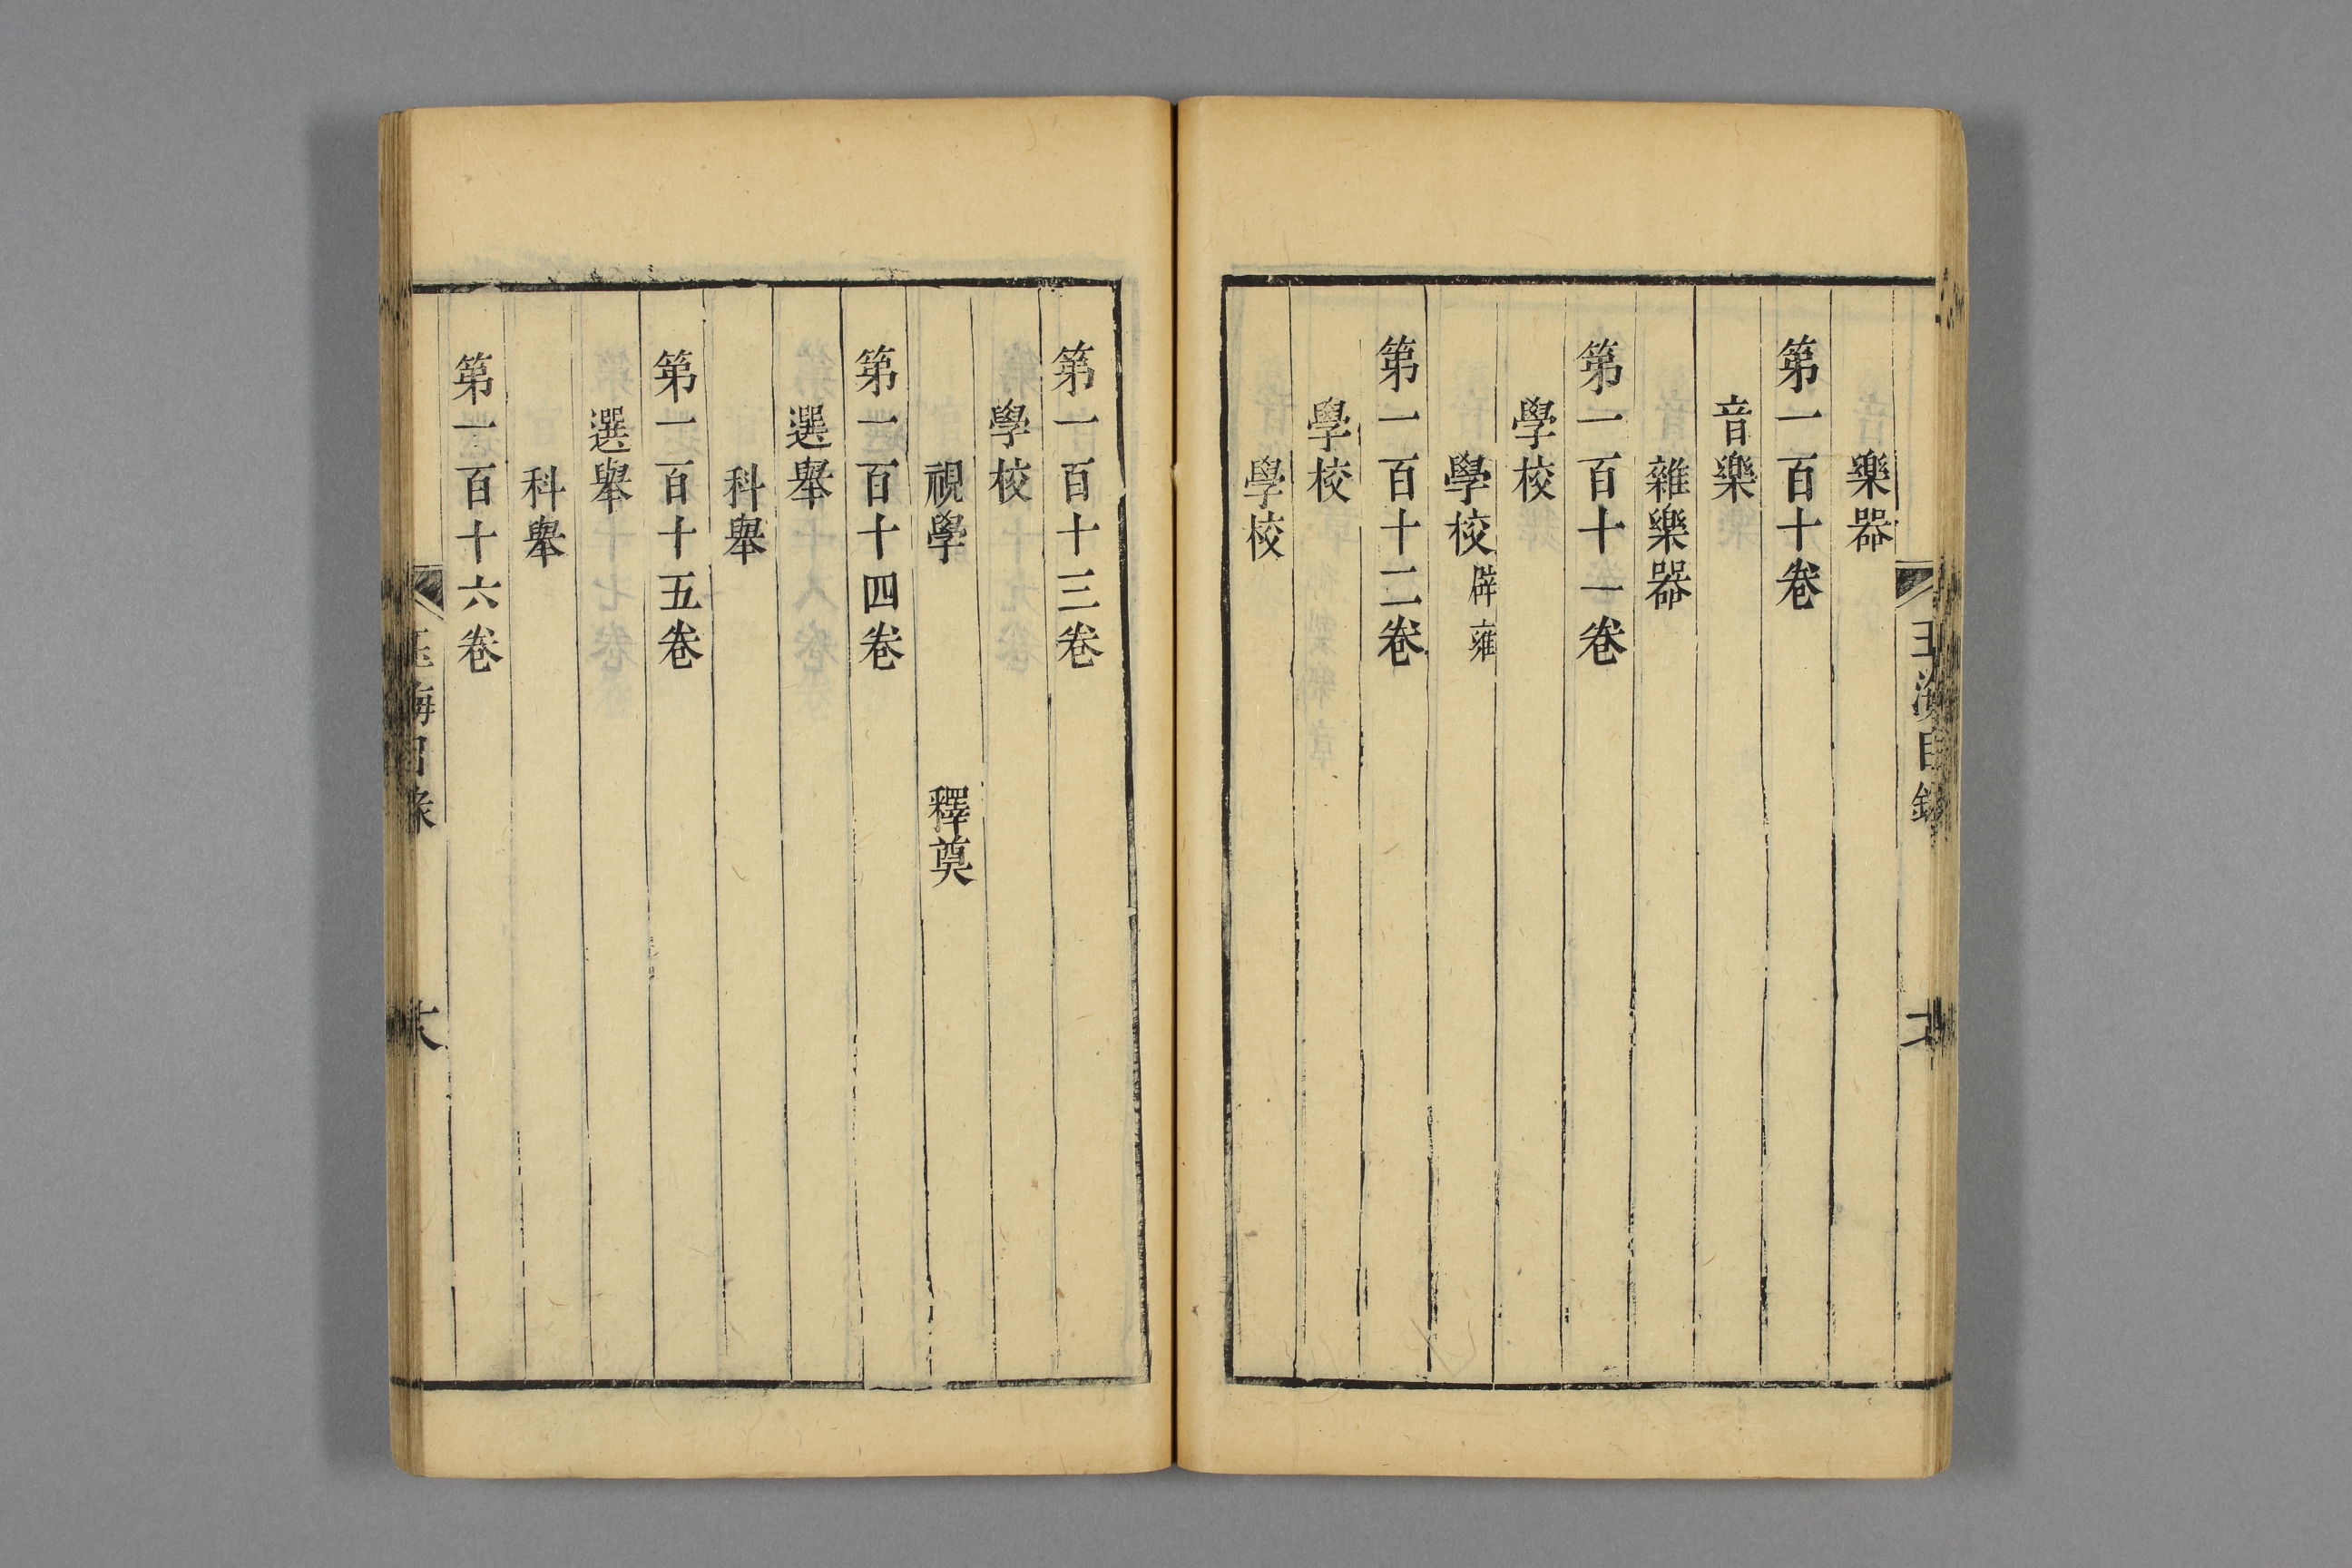 玉海目錄
樂器
第一百十卷
音樂
雜樂器
第一百十一卷
學校
學校辟雍
第一百十二卷
學校
學校
第一百十三卷
學校
視學 釋奠
第一百十四卷
選舉
科舉
第一百十五卷
選舉
科舉
第一百十六卷
玉海目錄